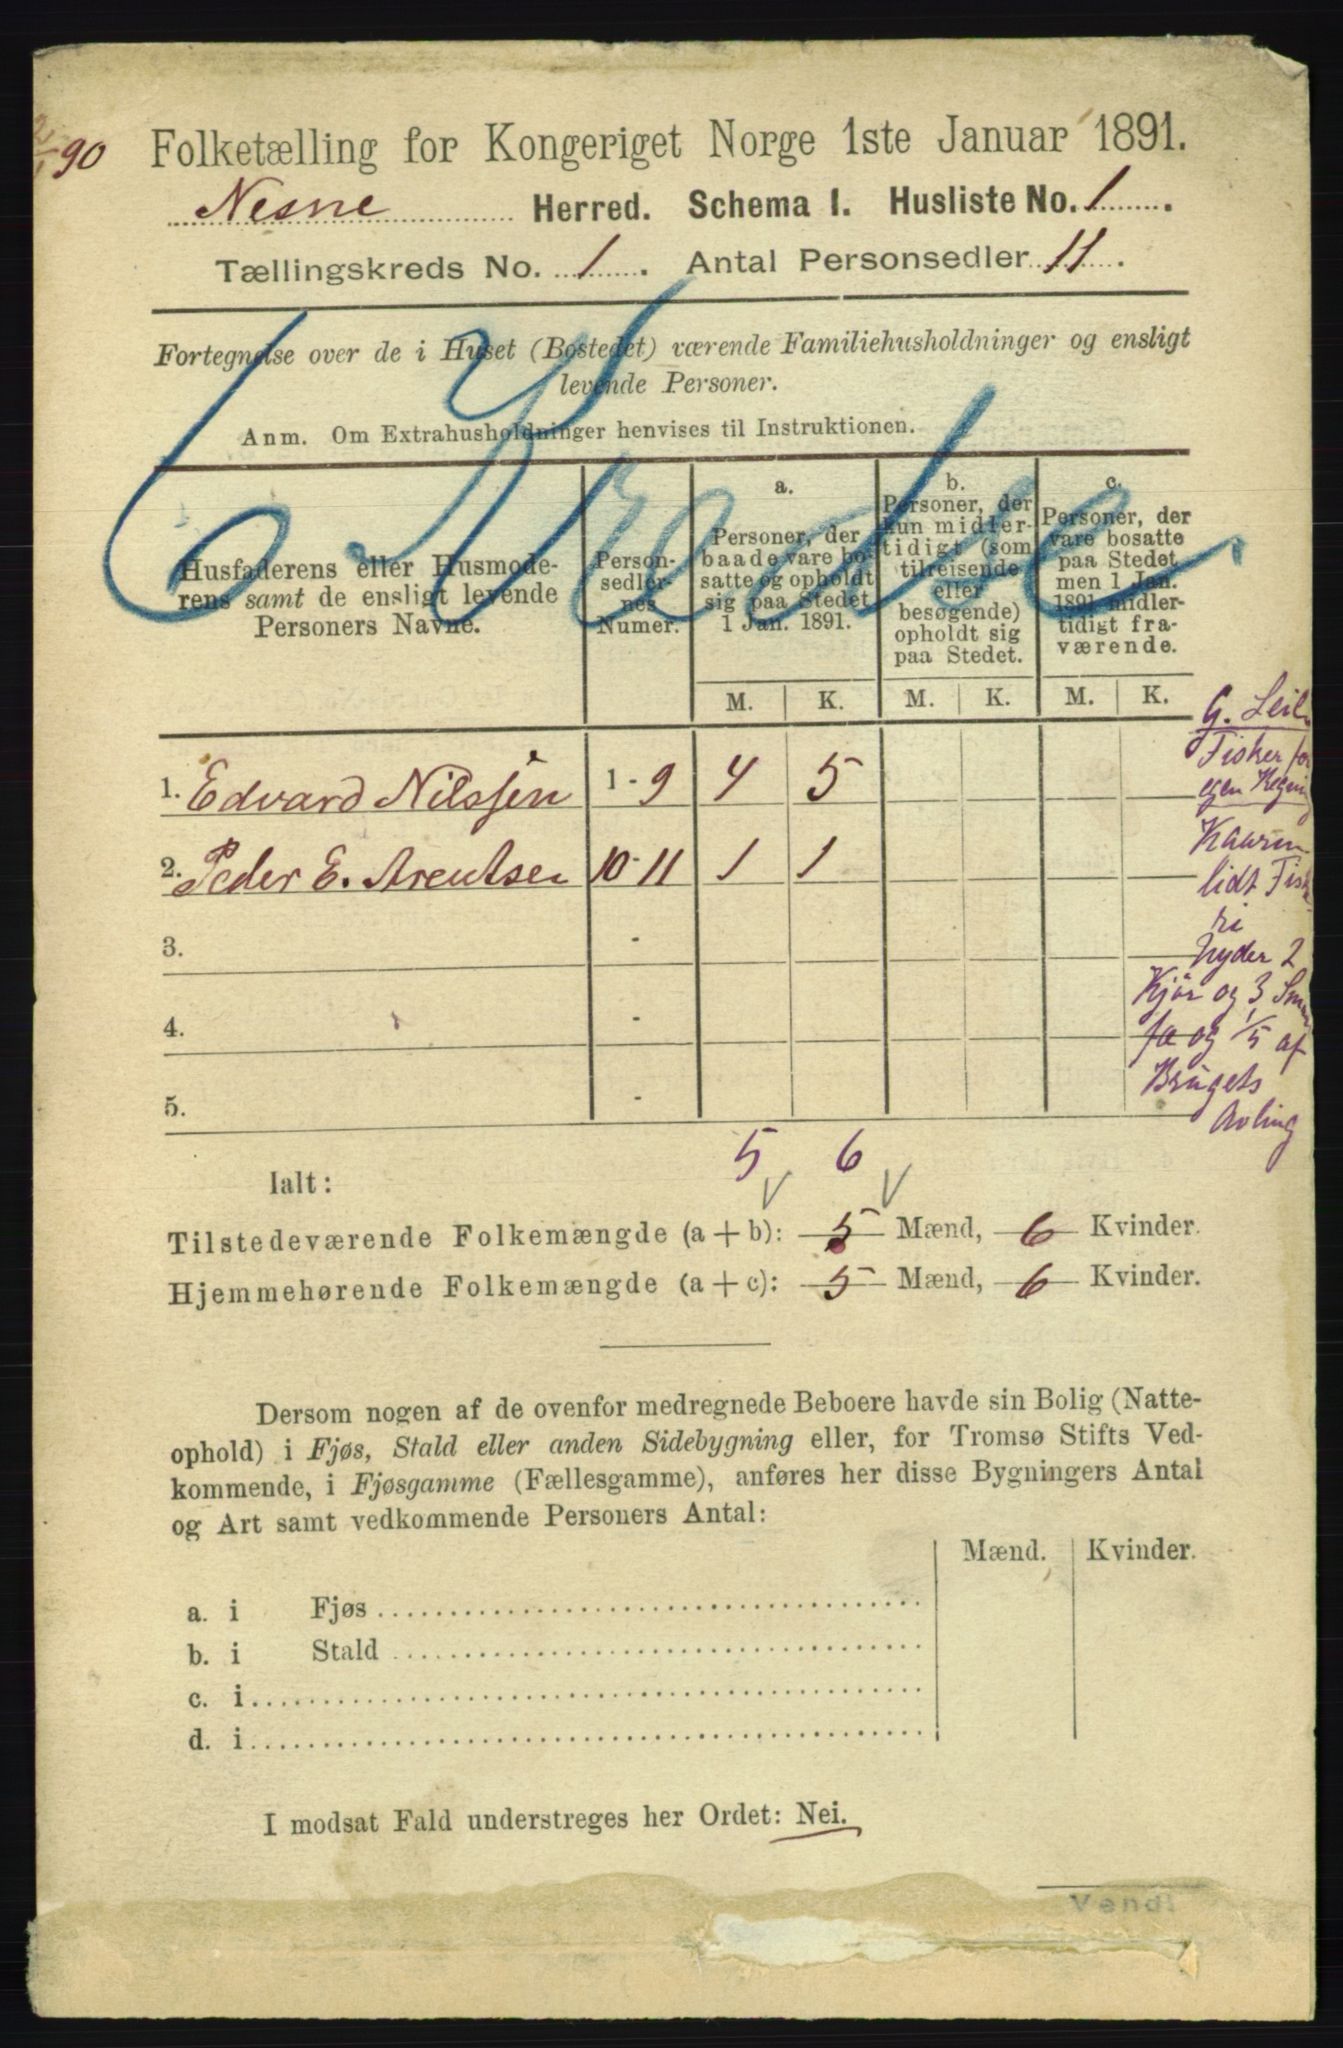 90
Folketælling for Kongeriget Norge 1ste Januar 1891.
Nesne Herred. Schema I. Husliste No. 1.
Tællingskreds No. 1. Antal Personsedler 11.
Fortegnelse over de i Huset (Bostedet) værende Familiehusholdninger og ensligt
levende Personer.
Anm. Om Extrahusholdninger henvises til Instruktionen.
Husfaderens eller Husmode-
rens samt de ensligt levende
Personers Navne.
Person-
sedler-
nes
Numer.
a.
Personer, der
baade vare bo-
satte og opholdt
sig paa Stedet
1 Jan. 1891.
b.
Personer, der
kun midler-
tidigt (som
tilreisende
eller
besøgende)
opholdt sig
paa Stedet.
c.
Personer, der
vare bosatte
paa Stedet
men 1 Jan.
1891 midler-
tidigt fra-
værende.
M. K. M. K. M. K.
1. Edvard Nilssen 1-9 4 5
2. Peder E. Arentsen 10-11 1 1
3. -
4. -
5. -
G. Leil
Fisker for
egen Regning
lidt Fiske
ri
nyder 2
Kjør og 3 Smaa
fæ og 1/5 af
Brugets
Avling
5 6
Ialt:
Tilstedeværende Folkemængde (a + b): 5 Mænd, 6 Kvinder.
Hjemmehørende Folkemængde (a + c): 5 Mænd, 6 Kvinder.
Dersom nogen af de ovenfor medregnede Beboere havde sin Bolig (Natte-
ophold) i Fjøs, Stald eller anden Sidebygning eller, for Tromsø Stifts Ved-
kommende, i Fjøsgamme (Fællesgamme), anføres her disse Bygningers Antal
og Art samt vedkommende Personers Antal:
Mænd. Kvinder.
a. i Fjøs
b. i Stald
c. i
d. i
I modsat Fald understreges her Ordet: Nei.
Vend!